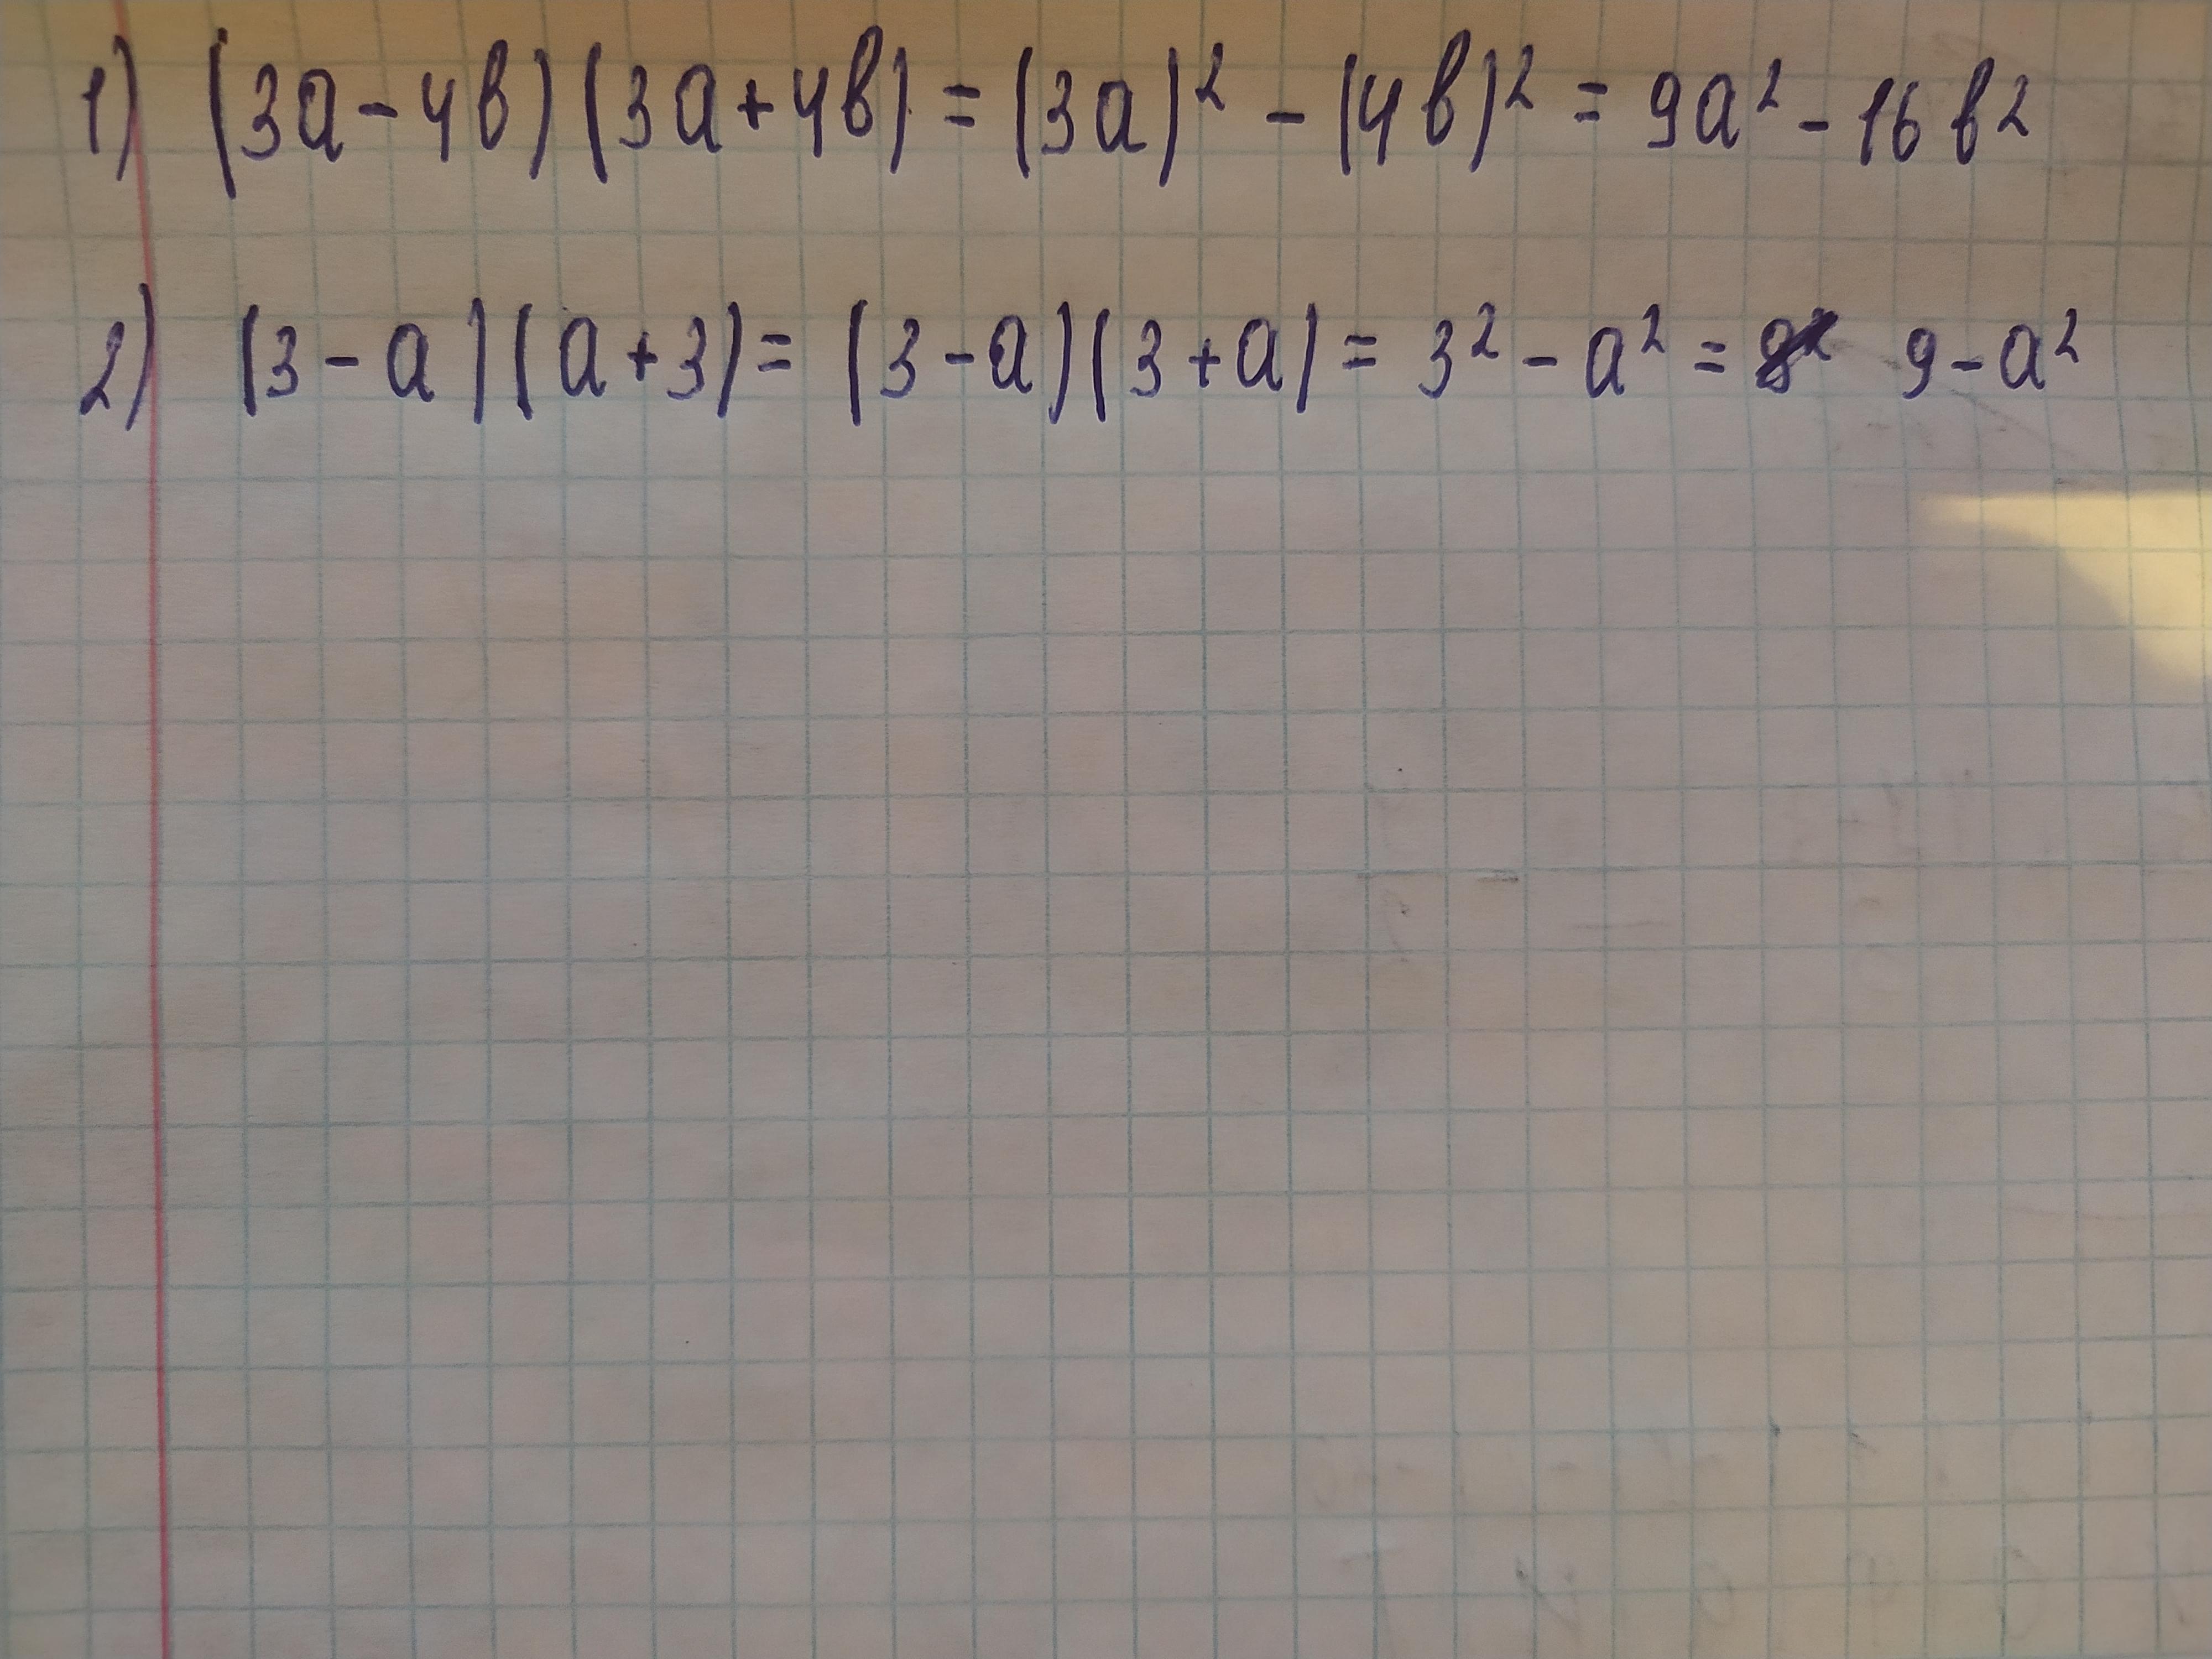 1) (3a-4в)(3a+4в) = (3a)² - (4в)² = 9a² - 16в²
2) (3-a)(a+3) = (3-a)(3+a) = 3² - a² = 9-a²